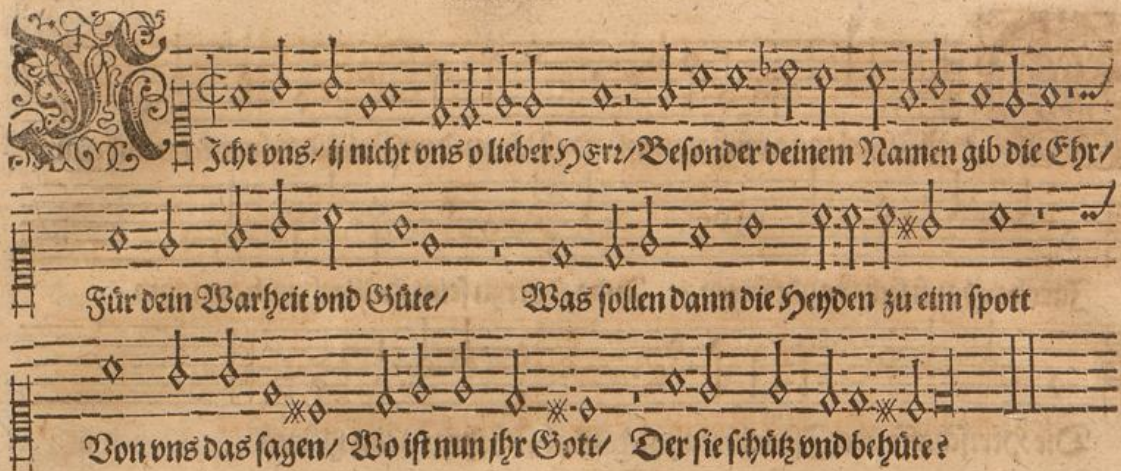 NIcht vns/ ij nicht vns o lieber HErr/ Besonder deinem Namen gib die Ehr/
Für dein Warheit vnd Güte/ Was sollen dann die Heyden zu eim spott
Von vns das sagen/ Wo ist nun jhr Gott/ Der sie schütz vnd behüte?